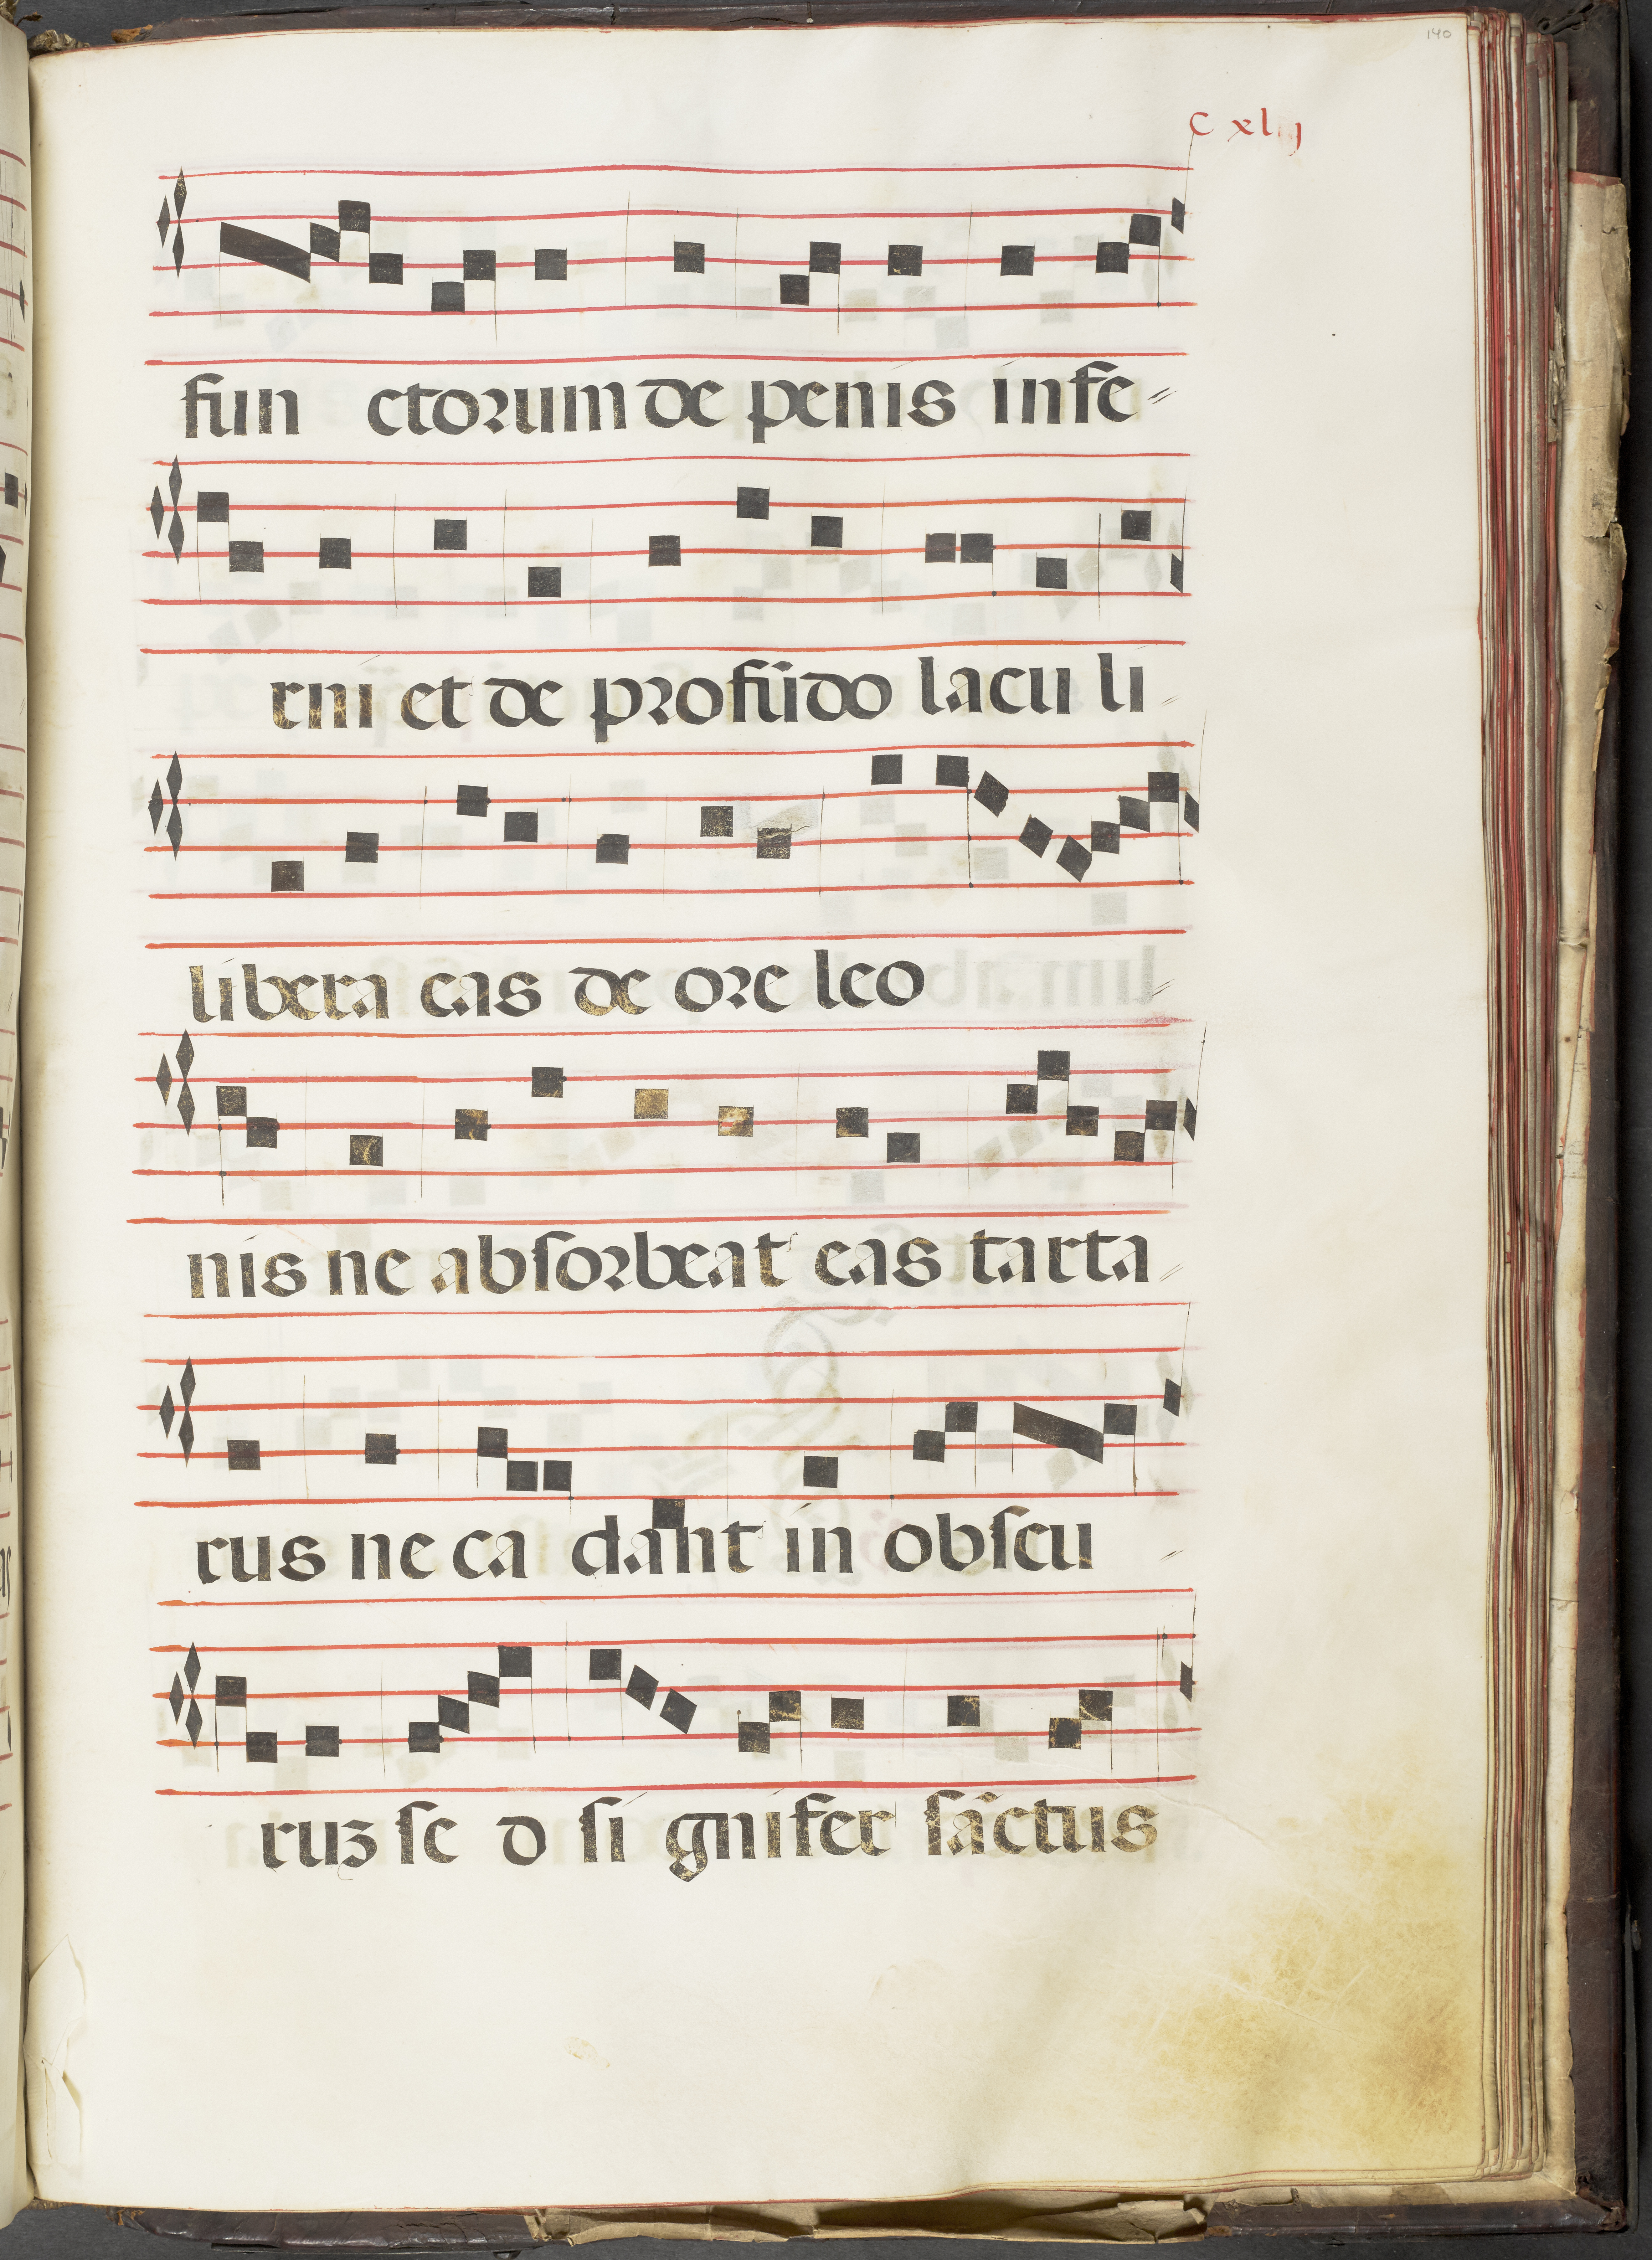 140
C xlij
fun ctorum de penis infe
rni et de profūdo lacu li
libera eas de ore leo
nis ne absorbeat eas tarta
rus ne ca dant in obscu
ruʒ se d si gnifer sāctus